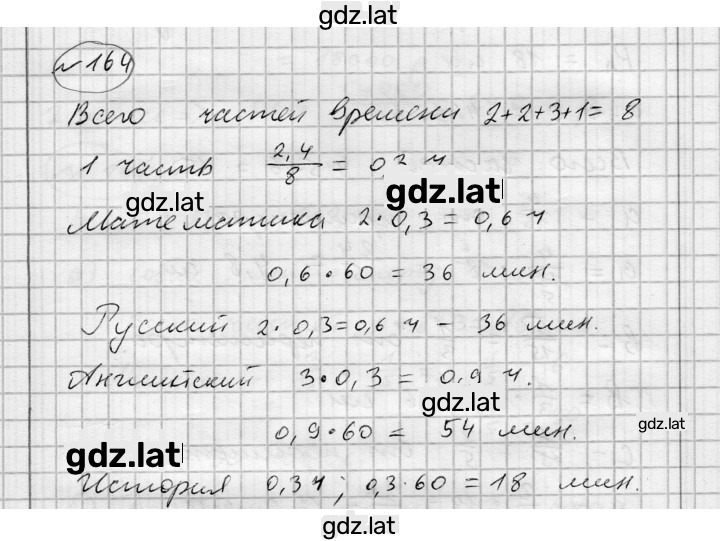 gdz.lat
№ 164
Всего частей времени 2+2+3+1= 8
1 часть 2,4/8 = 0,2 ч
gdz.lat
gdz.lat
Математика 2·0,3=0,6 ч
0,6·60 = 36 мин.
Русский 2·0,3=0,6 ч – 36 мин.
Английский 3·0,3 = 0,9 ч.
gdz.lat
0,9·60 = 54 мин.
gdz.lat
gdz.lat
История 0,3ч; 0,3·60=18 мин.
gdz.lat